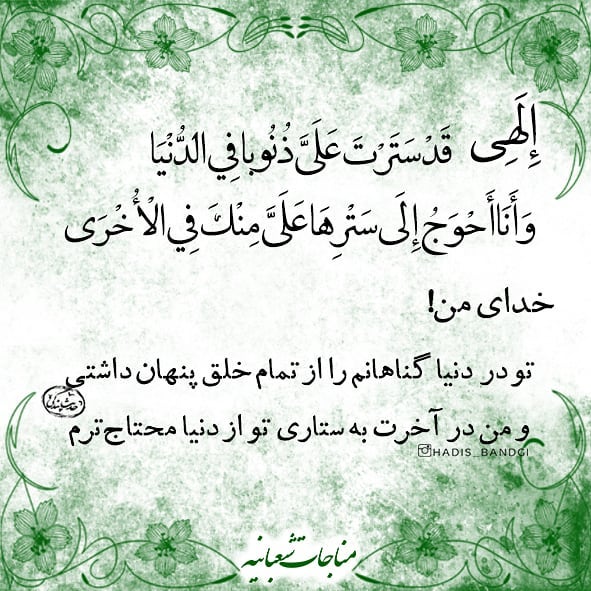 إِلَهِی قَدْ سَتَرْتَ عَلَيَّ ذُنُوبا فِي الدُّنْيَا
وَ أَنَا أَحْوَجُ إِلَى سَتْرِهَا عَلَيَّ مِنْكَ فِي الْأُخْرَى
خدای من!
تو در دنیا گناهانم را از تمام خلق پنهان داشتی
و من در آخرت به ستاری تو از دنیا محتاج‌ترم
HADIS_BANDGI
مناجات شعبانیه